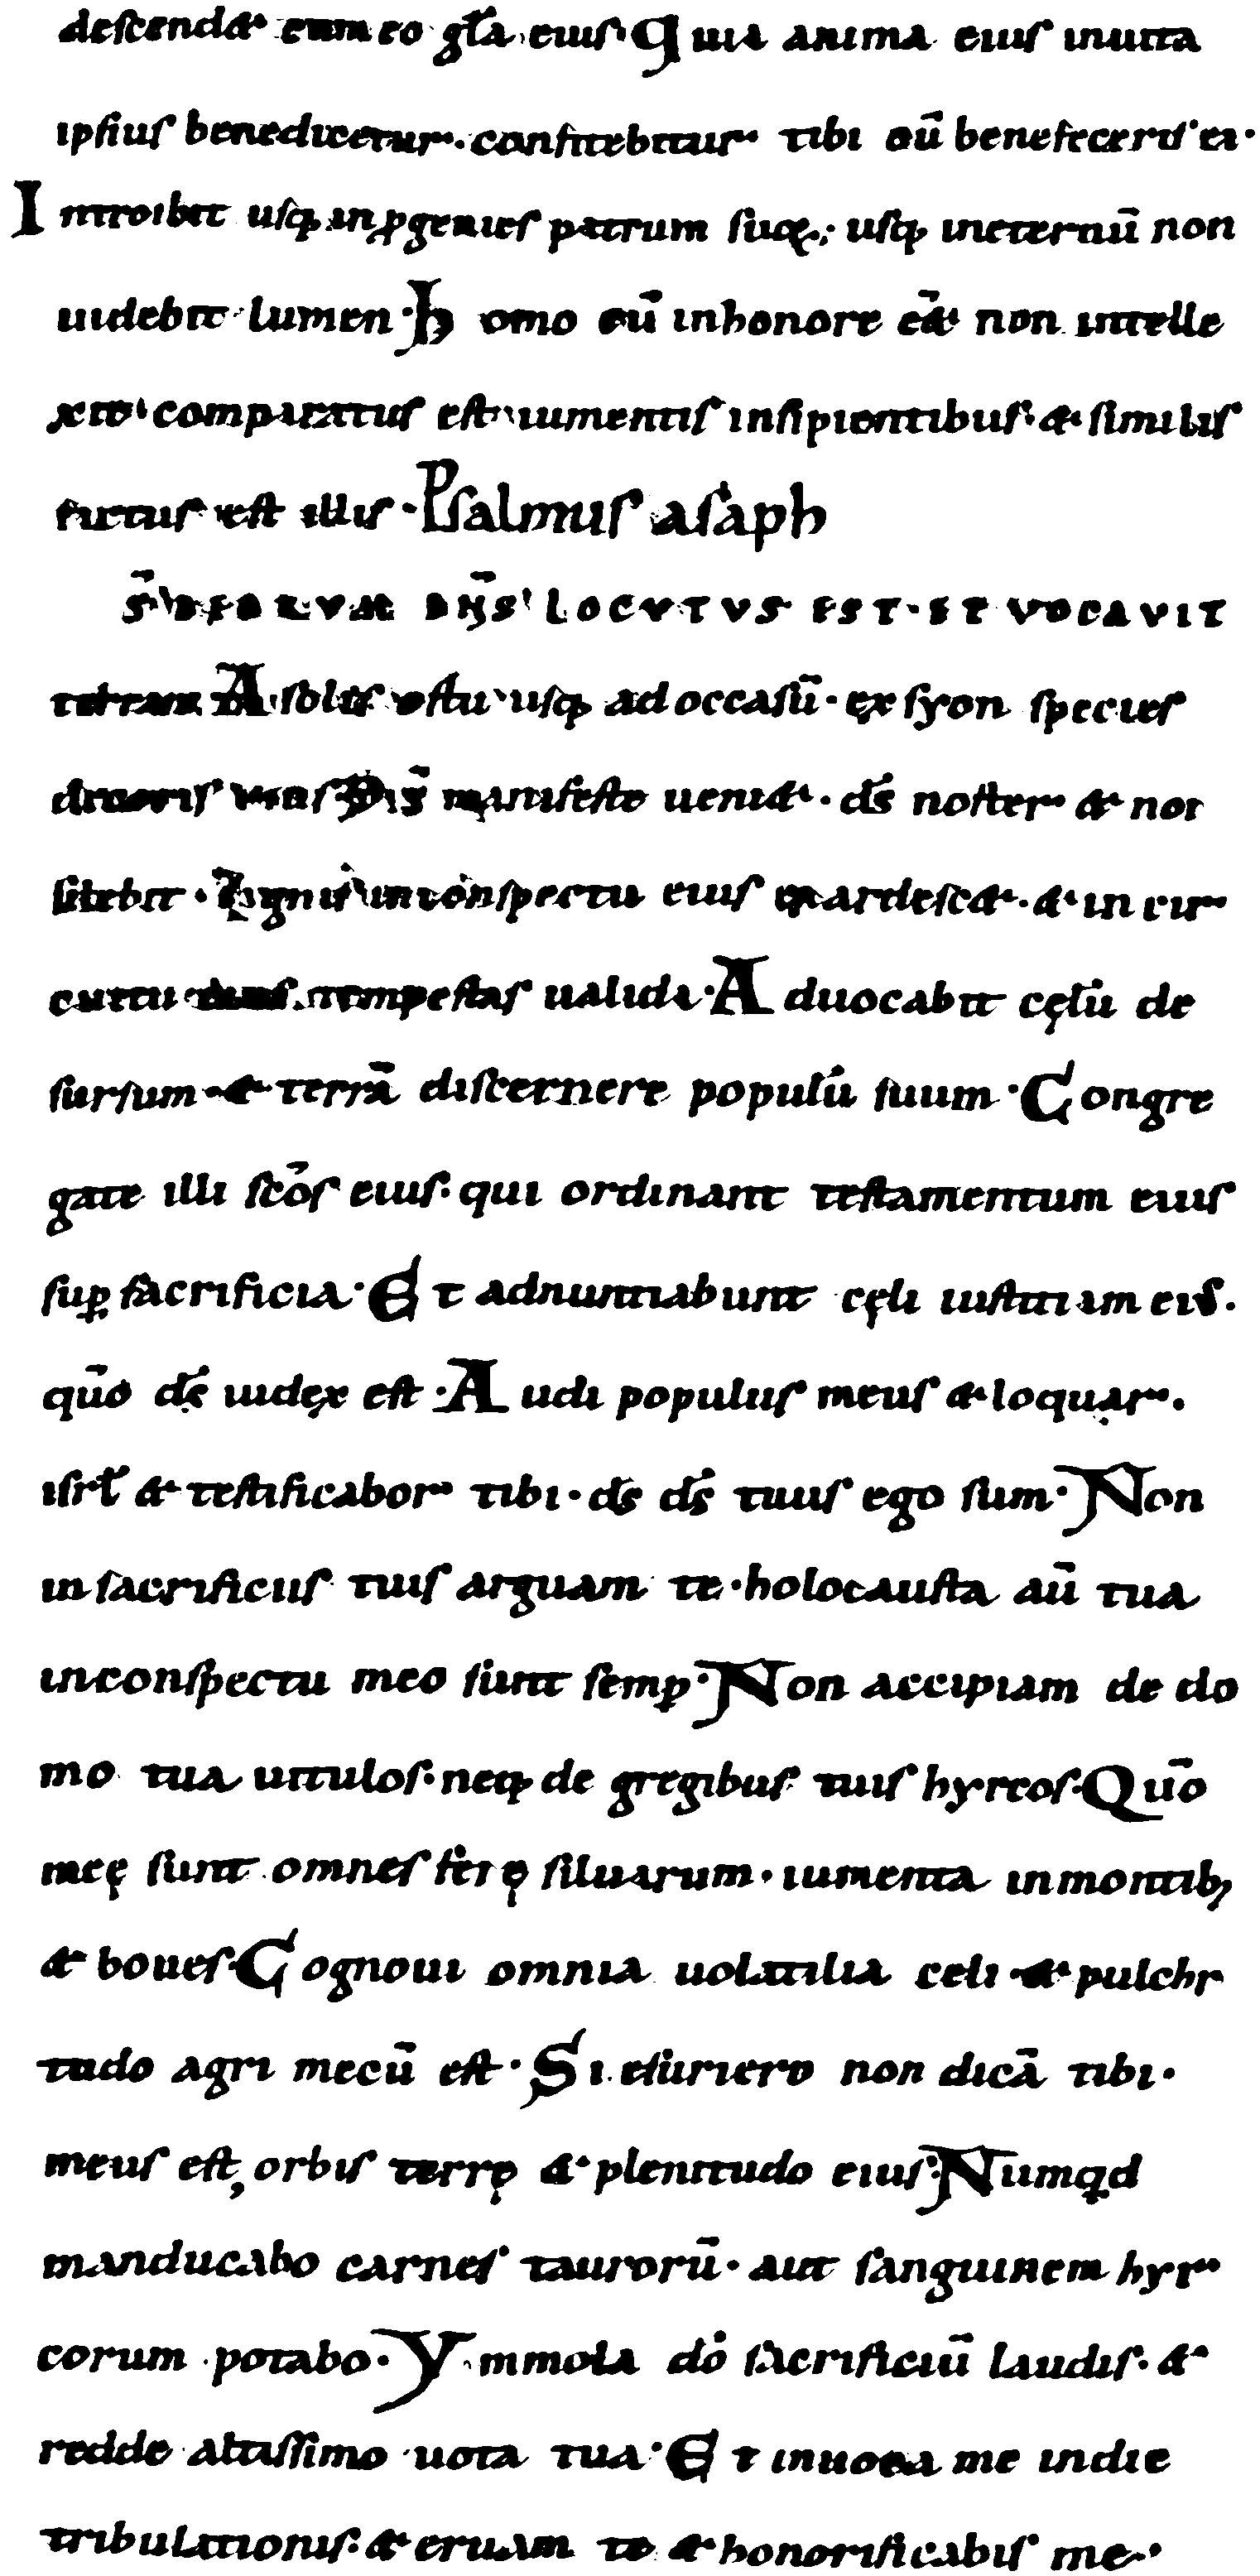 descend& cum eo gła eius Quia anima eius inuita
ipsius benedicetur. confitebitur tibi cū benefeceris ei.
Introibit usq; in ꝓgenies patrum suoꝝ; usq; inęternū non
uidebit lumen. homo cū inhonore eēt non intelle
xit comparatus est iumentis insipientibus. & similis
factus est illis. Psalmus asaph
D̄S DEORVM DN̄S LOCVTVS EST. ET VOCAVIT
terram A solis ortu usq; ad occasū. ex syon species
decoris eius D̄s manifeste ueni&. d̄s noster & non
silebit. Ignis inconspectu eius exardesc&. & in cir
cuitu eius tempestas ualida. Aduocabit cęlū de
sursum & terrā discernere populū suum. Congre
gate illi sc̄os eius. qui ordinant testamentum eius
suꝑ sacrificia. Et adnuntiabunt cęli iustitiam eius.
qūo d̄s iudex est. Audi populus meus & loquar.
isrł & testificabor tibi. d̄s d̄s tuus ego sum. Non
in sacrificiis tuis arguam te. holocausta aū tua
inconspectu meo sunt semꝑ. Non accipiam de do
mo tua uitulos. neq; de gregibus tuis hyrcos. Qūo
meę sunt omnes ferę siluarum. iumenta inmontib;
& boues. Cognoui omnia uolatilia celi & pulchr
tudo agri mecū est. Si esuriero non dicā tibi.
meus est, orbis terrę & plenitudo eius. Numqd
manducabo carnes taurorū. aut sanguinem hyr
corum potabo. Ymmola dō sacrificiū laudis. &
redde altissimo uota tua. Et inuoca me indie
tribulationis. & eruam te & honorificabis me.